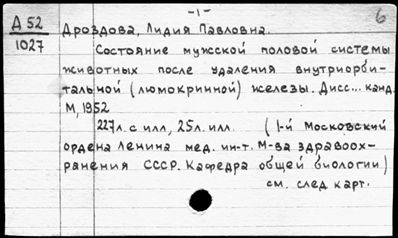 -1-
6
А 52
1027
Дроздова, Лидия Павловна.
Состояние мужской половой системы
животных после удаления внутриорби-
тальной (люмокринной) железы. Дисс... канд.
М, 1952
227л. с илл, 25л. илл. (1-й Московский
ордена Ленина мед. ин-т. М-ва здравоох-
ранения СССР. Кафедра общей биологии)
см. след карт.